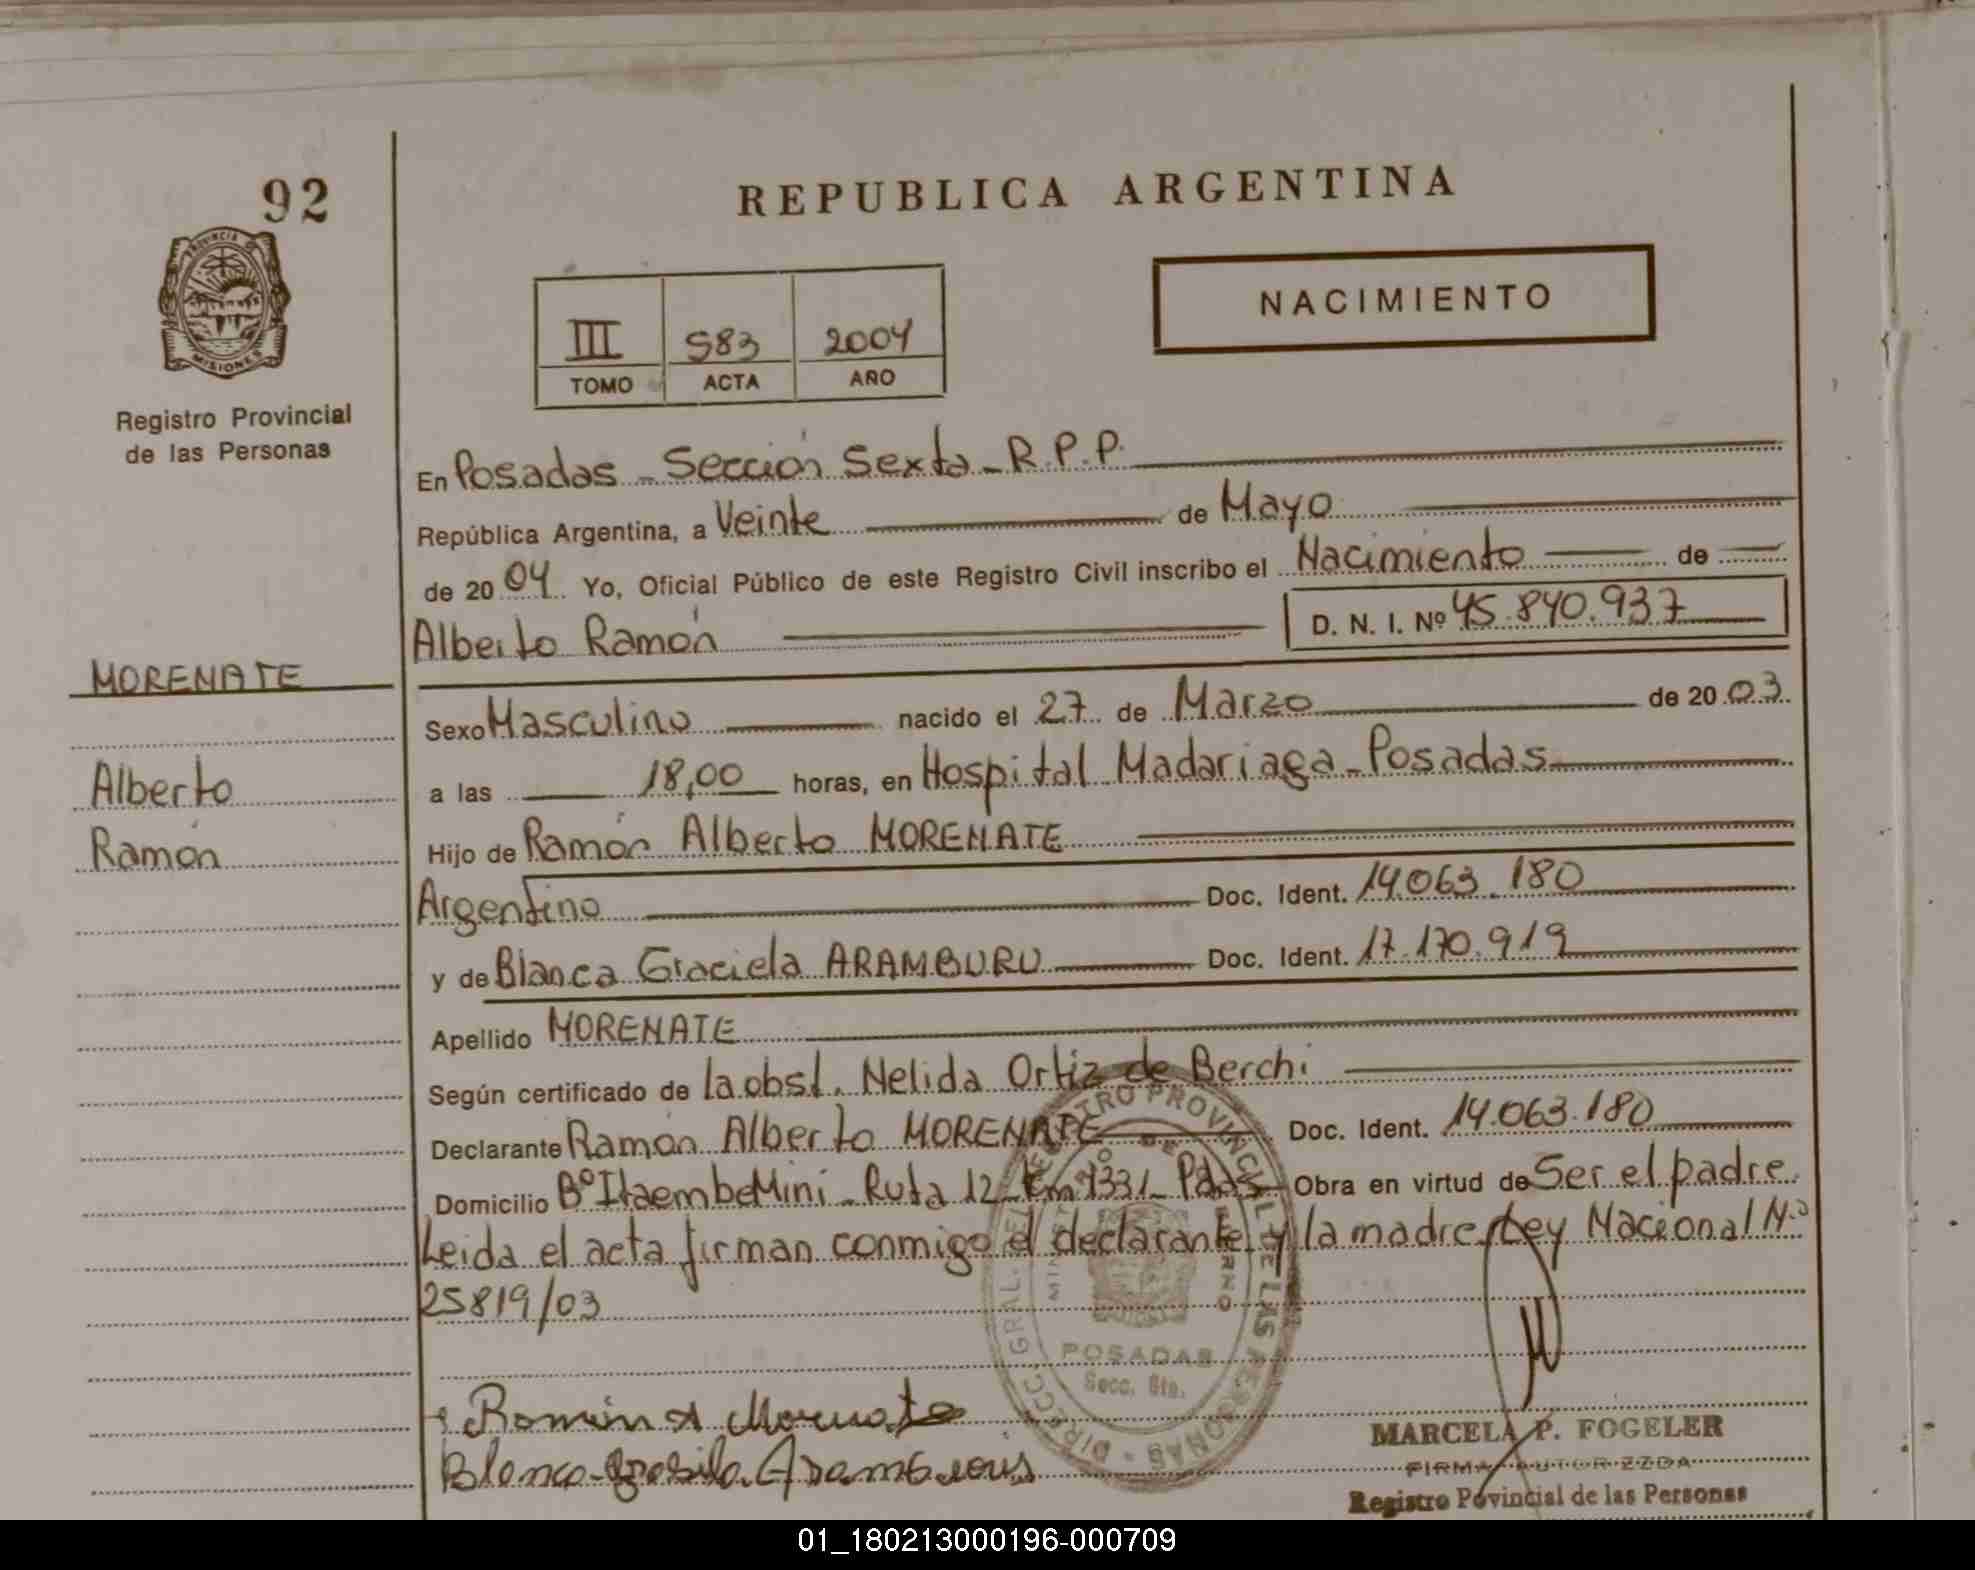 92
REPUBLICA ARGENTINA
PROVINCIA DE
MISIONES
Registro Provincial
de las Personas
NACIMIENTO
III 583 2004
TOMO ACTA AÑO
En Posadas - Sección Sexta - R.P.P.
República Argentina, a Veinte de Mayo
de 2004 Yo, Oficial Público de este Registro Civil inscribo el Nacimiento de
Alberto Ramón D. N. I. Nº 45.840.937
MORENATE
Sexo Masculino nacido el 27 de Marzo de 2003
Alberto
a las 18,00 horas, en Hospital Madariaga - Posadas
Ramón
Hijo de Ramón Alberto MORENATE
Argentino Doc. Ident. 14.063.180
y de Blanca Graciela ARAMBURU Doc. Ident. 17.170.919
Apellido MORENATE
Según certificado de la obst. Nelida Ortiz de Berchi
Declarante Ramón Alberto MORENATE Doc. Ident. 14.063.180
Domicilio Bº Itaembe Mini - Ruta 12 - Km 1331 - Pdas Obra en virtud de Ser el padre
Leida el acta firman conmigo el declarante y la madre, Ley Nacional Nº
25819/03
DIRECC. GRAL. DEL REGISTRO PROVINCIAL DE LAS PERSONAS
POSADAS
Secc. 6ta.
Ramón A Morenate
MARCELA P. FOGELER
FIRMA AUTORIZZDA
Registro Povincial de las Personas
01_180213000196-000709